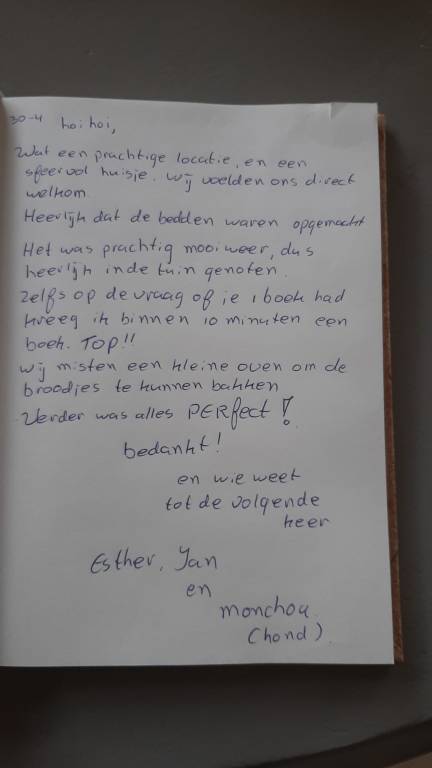 30-4 hoi hoi,
Wat een prachtige locatie, en een
sfeervol huisje. Wij voelden ons direct
welkom.
Heerlijk dat de bedden waren opgemacht
Het was prachtig mooi weer, dus
heerlijk in de tuin genoten.
Zelfs op de vraag of je 1 boek had
kreeg ik binnen 10 minuten een
boek. TOP!!
Wij misten een kleine oven om de
broodjes te kunnen bakken
Verder was alles PERfect!
bedankt!
en wie weet
tot de volgende
keer
Esther, Jan
en
Monchou
(hond)